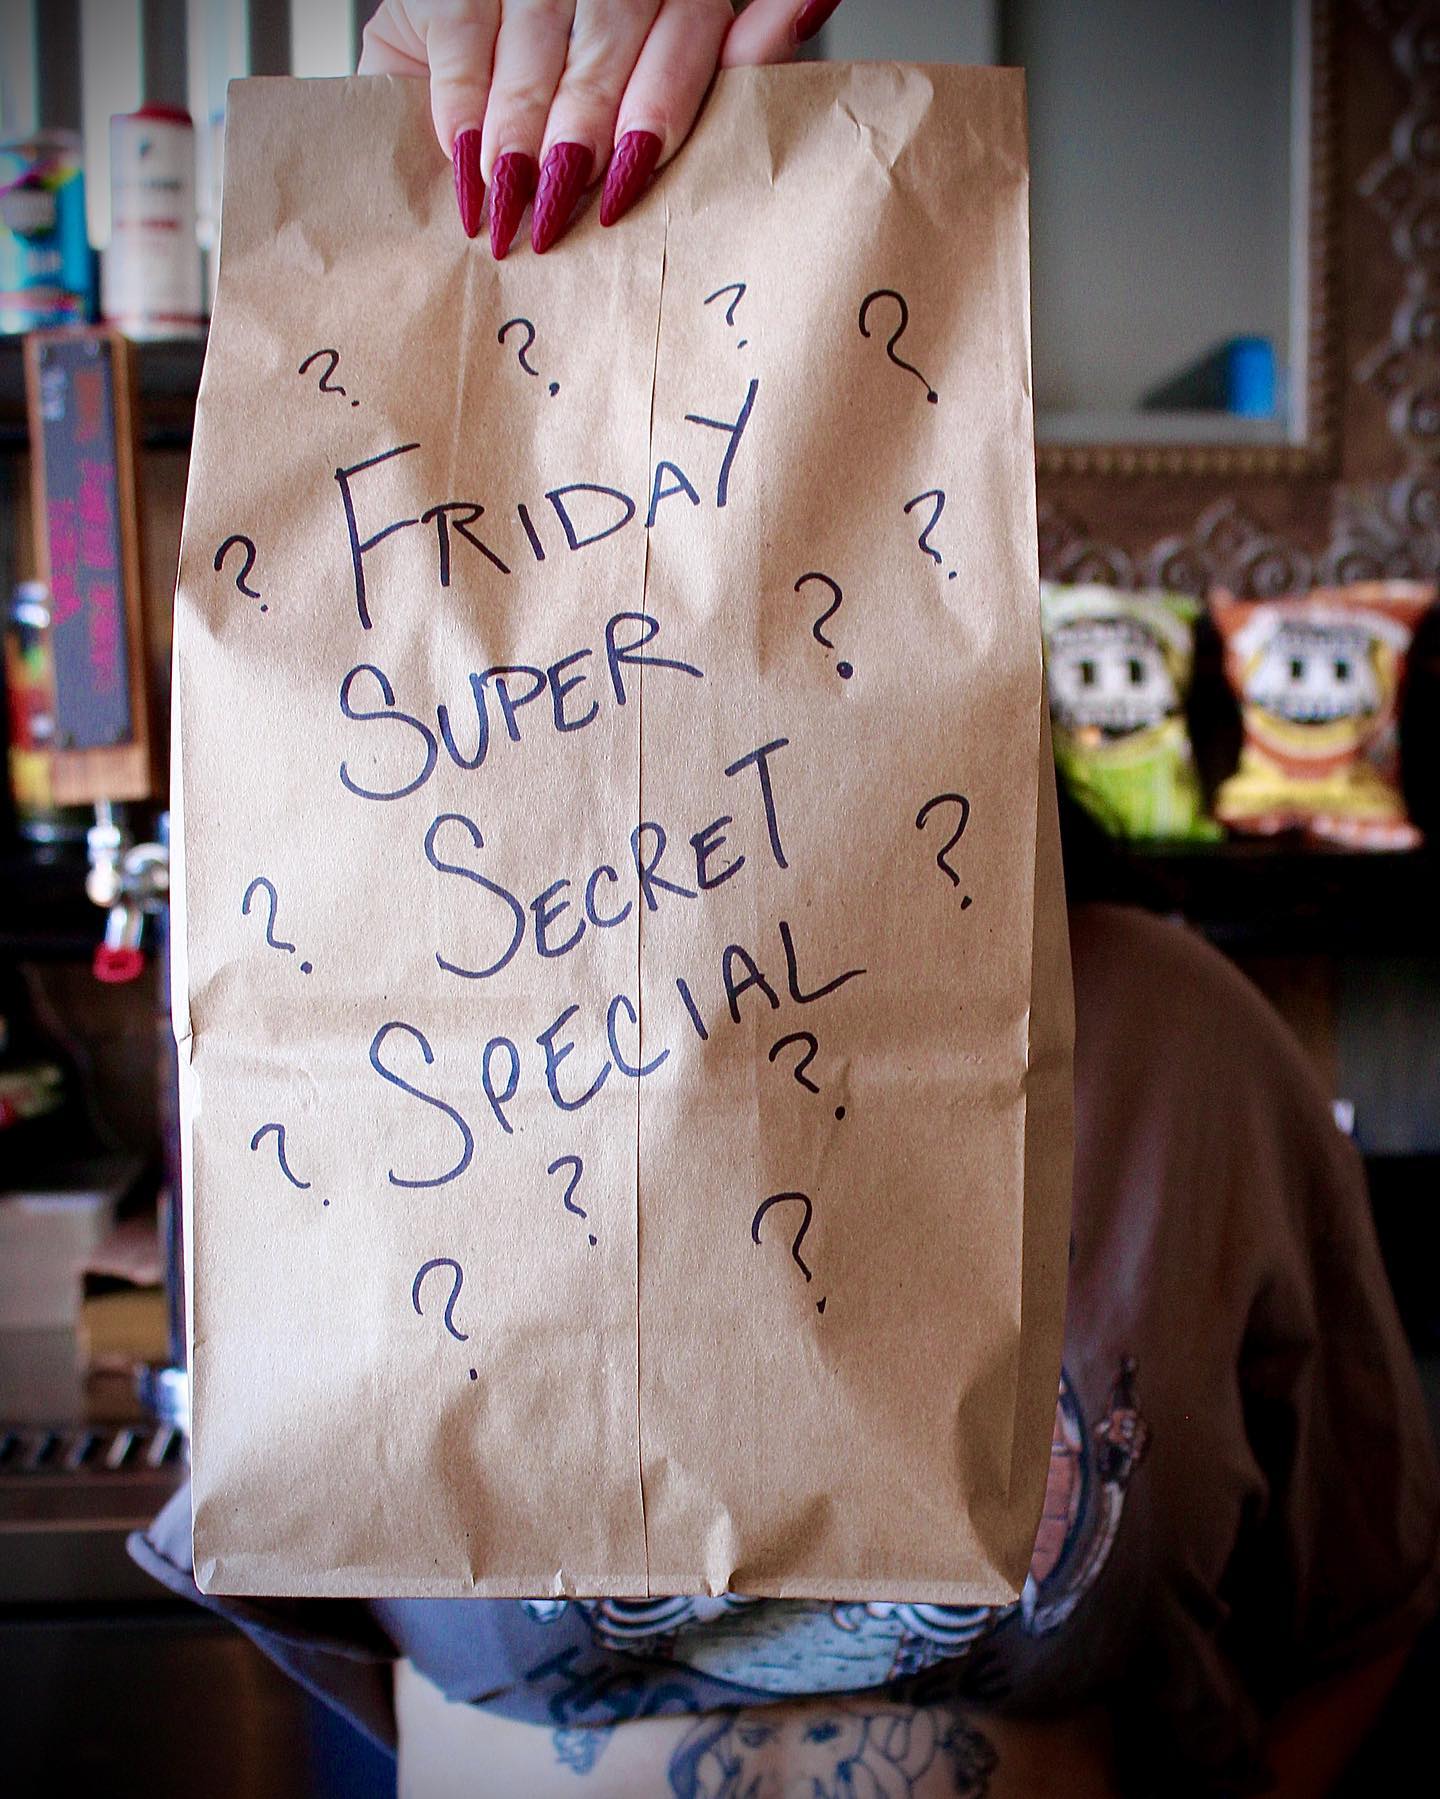 ? ? ? ?
FRIDAY
? ?
SUPER ?
SECRET
? ?
SPECIAL
?
? ?
? ?